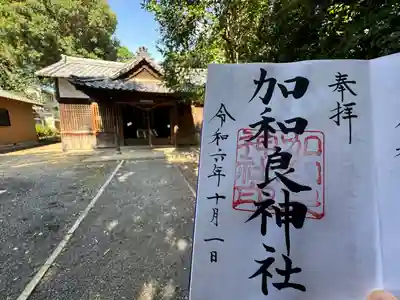 奉拝
加和良神社
令和六年十月一日